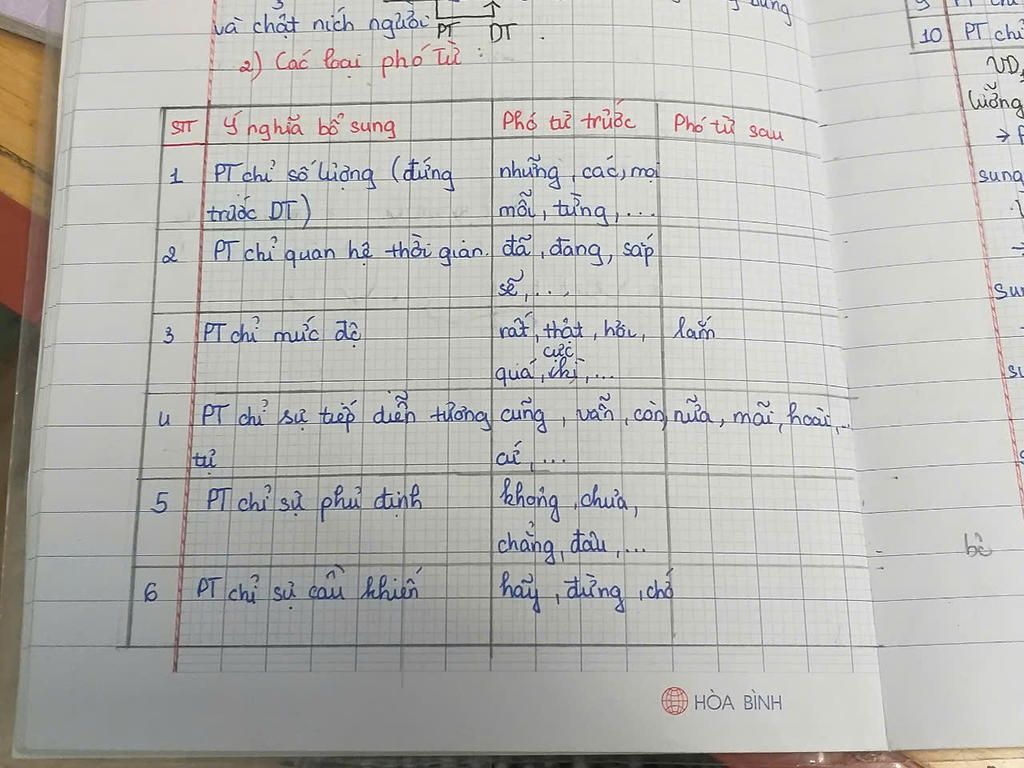 và chật ních người
PT DT .
2) Các loại phó từ :
STT Ý nghĩa bổ sung Phó từ trước Phó từ sau
1 PT chỉ số lượng (đứng những, các, mọi
trước DT) mỗi, từng, ...
2 PT chỉ quan hệ thời gian. đã, đang, sắp
sẽ, ...
3 PT chỉ mức độ rất, thật, hơi, lắm
cực
quá, chị, ...
4 PT chỉ sự tiếp diễn tương cũng, vẫn, còn, nữa, mãi, hoài, ..
tự cứ, ...
5 PT chỉ sự phủ định không, chưa,
chẳng, đâu, ...
6 PT chỉ sự cầu khiến hãy, đừng, chớ
HÒA BÌNH
9 PT chỉ
10 PT chỉ
VD
lưỡng
sung
bè